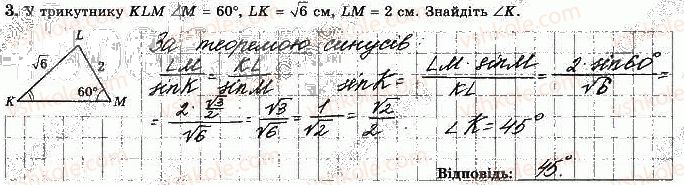 3. У трикутнику KLM ∠M = 60°, LK = √6 см, LM = 2 см. Знайдіть ∠K.
L
√6
2
60°
K
M
За теоремою синусів:
LM/sinK = KL/sinM sinK = LM · sinM/KL = 2 · sin60°/√6 =
= 2 · √3/2/√6 = √3/√6 = 1/√2 = √2/2. ∠K = 45°
Відповідь: 45°.